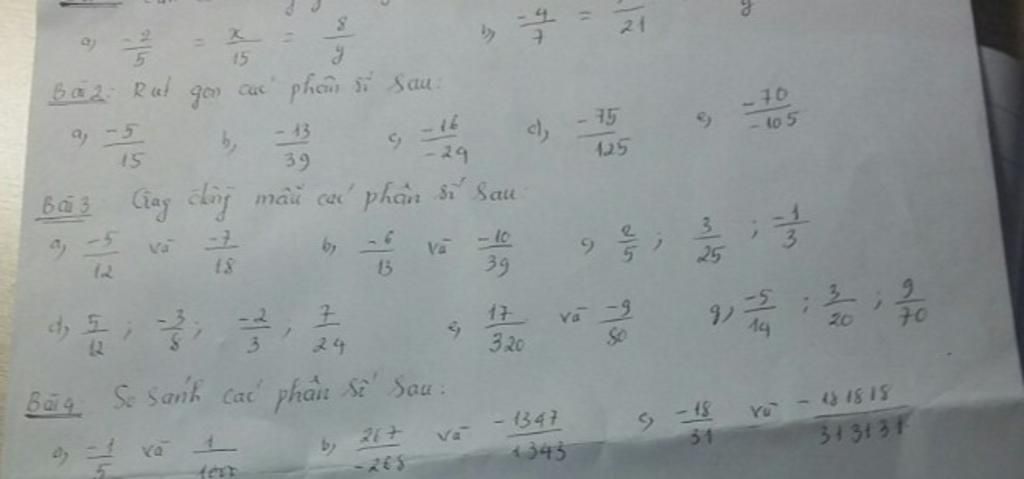 a) -2/5 = x/15 = 8/y b) -4/7 = /21 y
Bài 2: Rút gọn các phân số sau:
a) -5/15 b) -13/39 c) -16/-24 d) -75/125 e) -70/-105
Bài 3 đồng mẫu các phân số sau
a) -5/12 và -7/18 b) -6/13 và -10/39 c) 2/5 ; 3/25 ; -1/3
d) 5/12 ; -3/8 ; -2/3 ; 7/24 e) 17/320 và -9/80 g) -5/14 ; 3/20 ; 9/70
Bài 4 So sánh các phân số sau:
a) -1/5 và 1/ b) 267/-268 và -1347/1343 c) -18/31 và -181818/313131